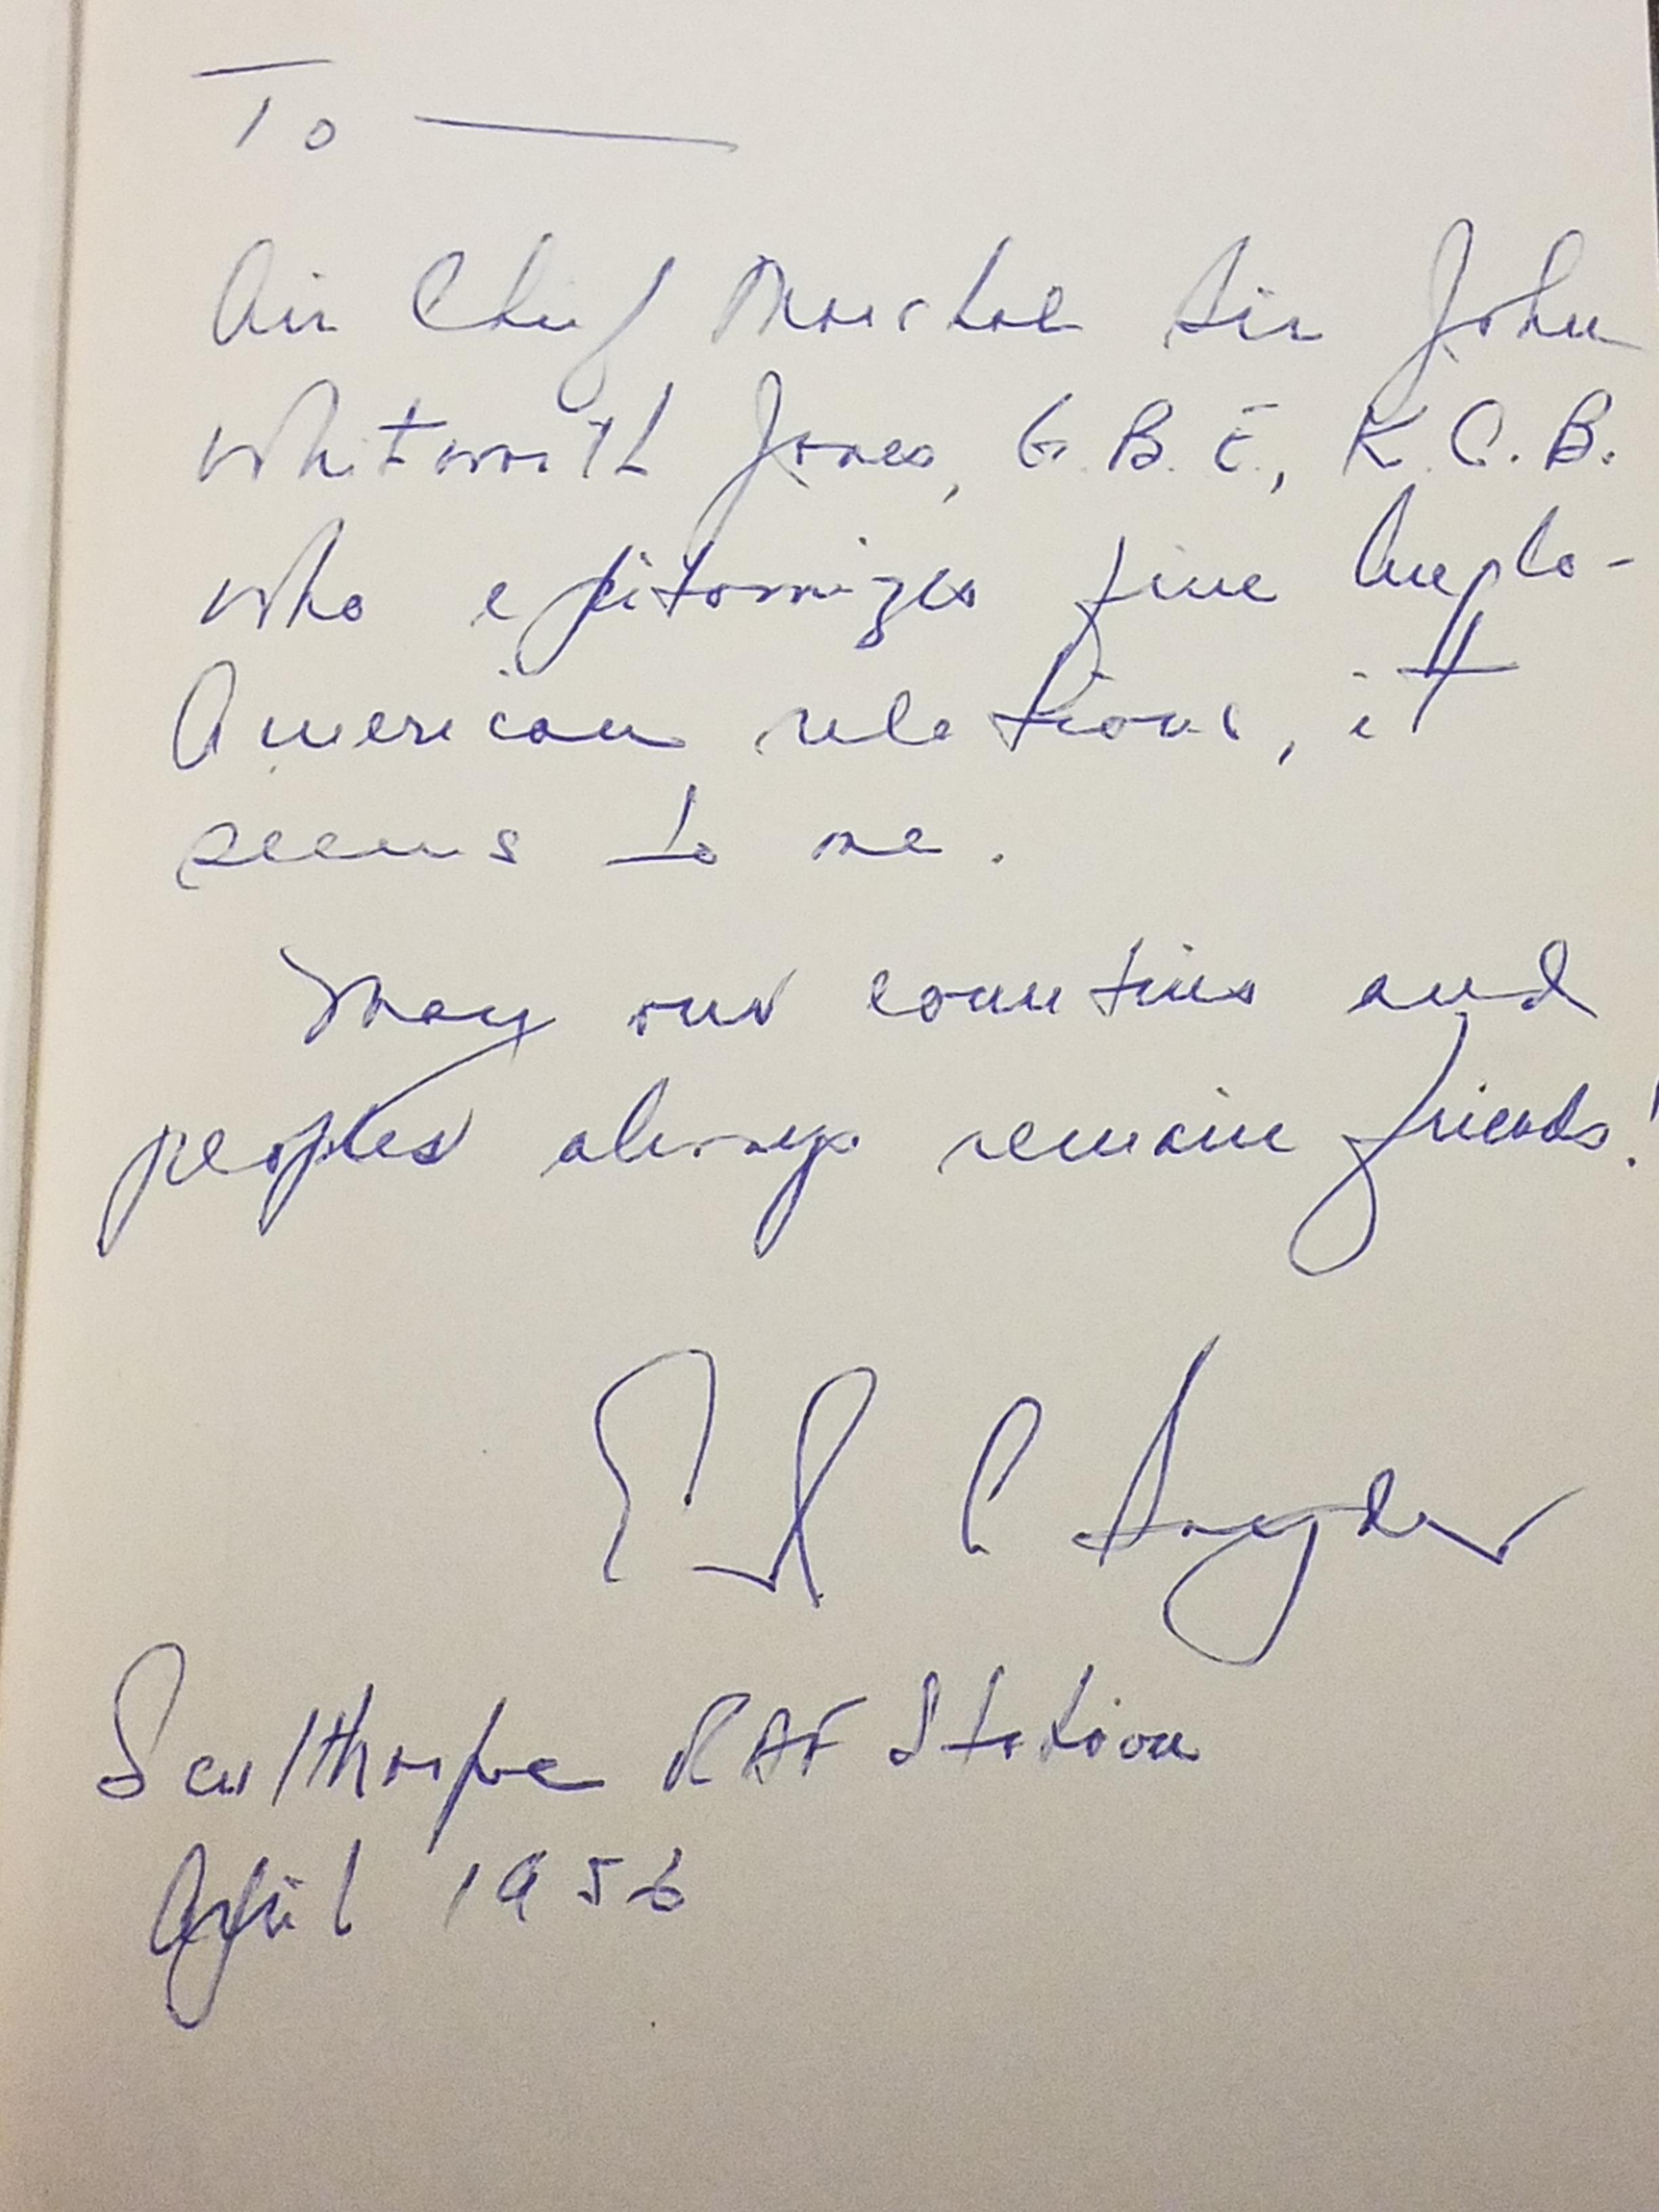 To —
Air Chief Marshal Sir John
Whitworth Jones, G.B.E., K.C.B.
who epitomizes fine Anglo-
American relations, it
seems to me.
May our countries and
peoples always remain friends!
Earl C Snyder
Sculthorpe RAF Station
April 1956